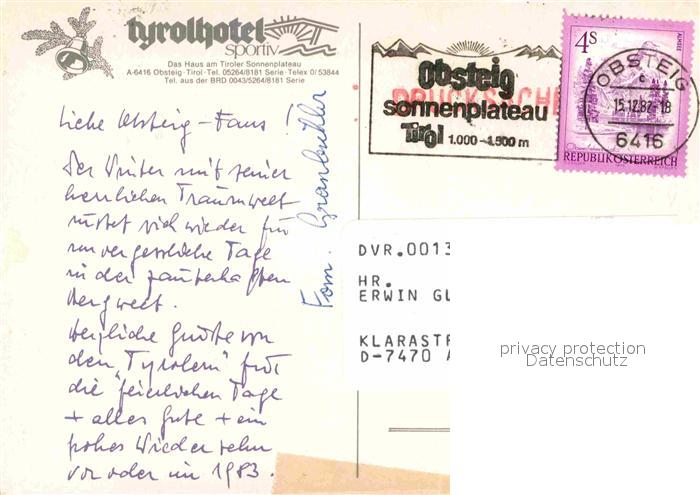 tyrolhotel
sportiv
Das Haus am Tiroler Sonnenplateau
A-6416 Obsteig · Tirol · Tel. 05264/8181 Serie · Telex 0/53844
Tel. aus der BRD 0043/5264/8181 Serie
Liebe Obsteig - Fans !
Der Winter mit seiner
herrlichen Traumwelt
rüstet sich wieder für
unvergessliche Tage
in der zauberhaften
Bergwelt.
Herzliche Grüße von
den "Tyrolern" für
die "feierlichen Tage
+ alles Gute + ein
frohes Wiedersehn
vor oder im 1983.
Fam.
DRUCKSACHE
Obsteig
sonnenplateau
Tirol 1.000-1.500 m
4S
ALMSEE
REPUBLIK ÖSTERREICH
OBSTEIG
c
15.12.82-18
6416
DVR.0013
HR.
ERWIN GL
KLARASTR
D-7470 A
privacy protection
Datenschutz